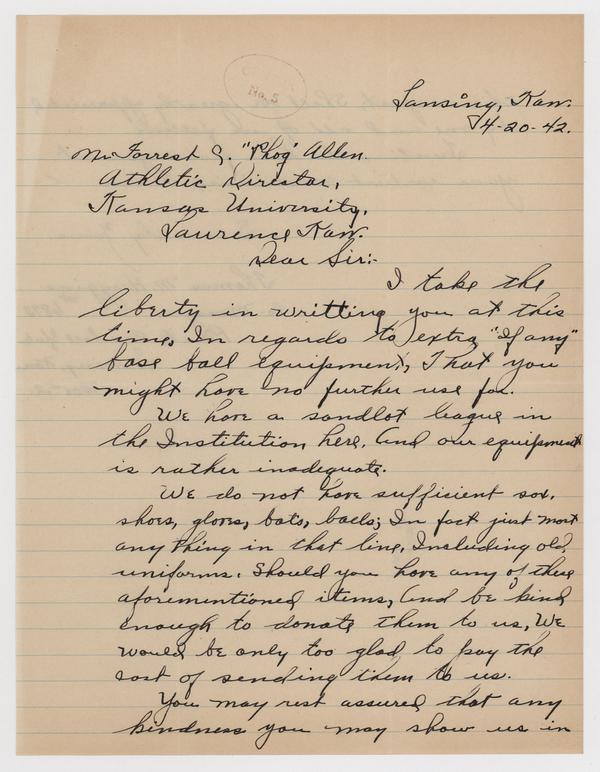 No. 5
Lansing, Kan.
4-20-42.
Mr Forrest C. "Phog" Allen.
Athletic Director,
Kansas University,
Lawrence Kan.
Dear Sir:-
I take the
liberty in writting you at this
time, In regards to extra "If any"
base ball equipment, That you
might have no further use for.
We have a sandlot league in
the Institution here. And our equipment
is rather inadequate.
We do not have sufficient sox,
shoes, gloves, bats, balls; In fact just most
any thing in that line, Including old,
uniforms. Should you have any of these
aforementioned items, And be kind
enough to donate them to us, We
would be only too glad to pay the
cost of sending them to us.
You may rest assured that any
kindness you may show us in